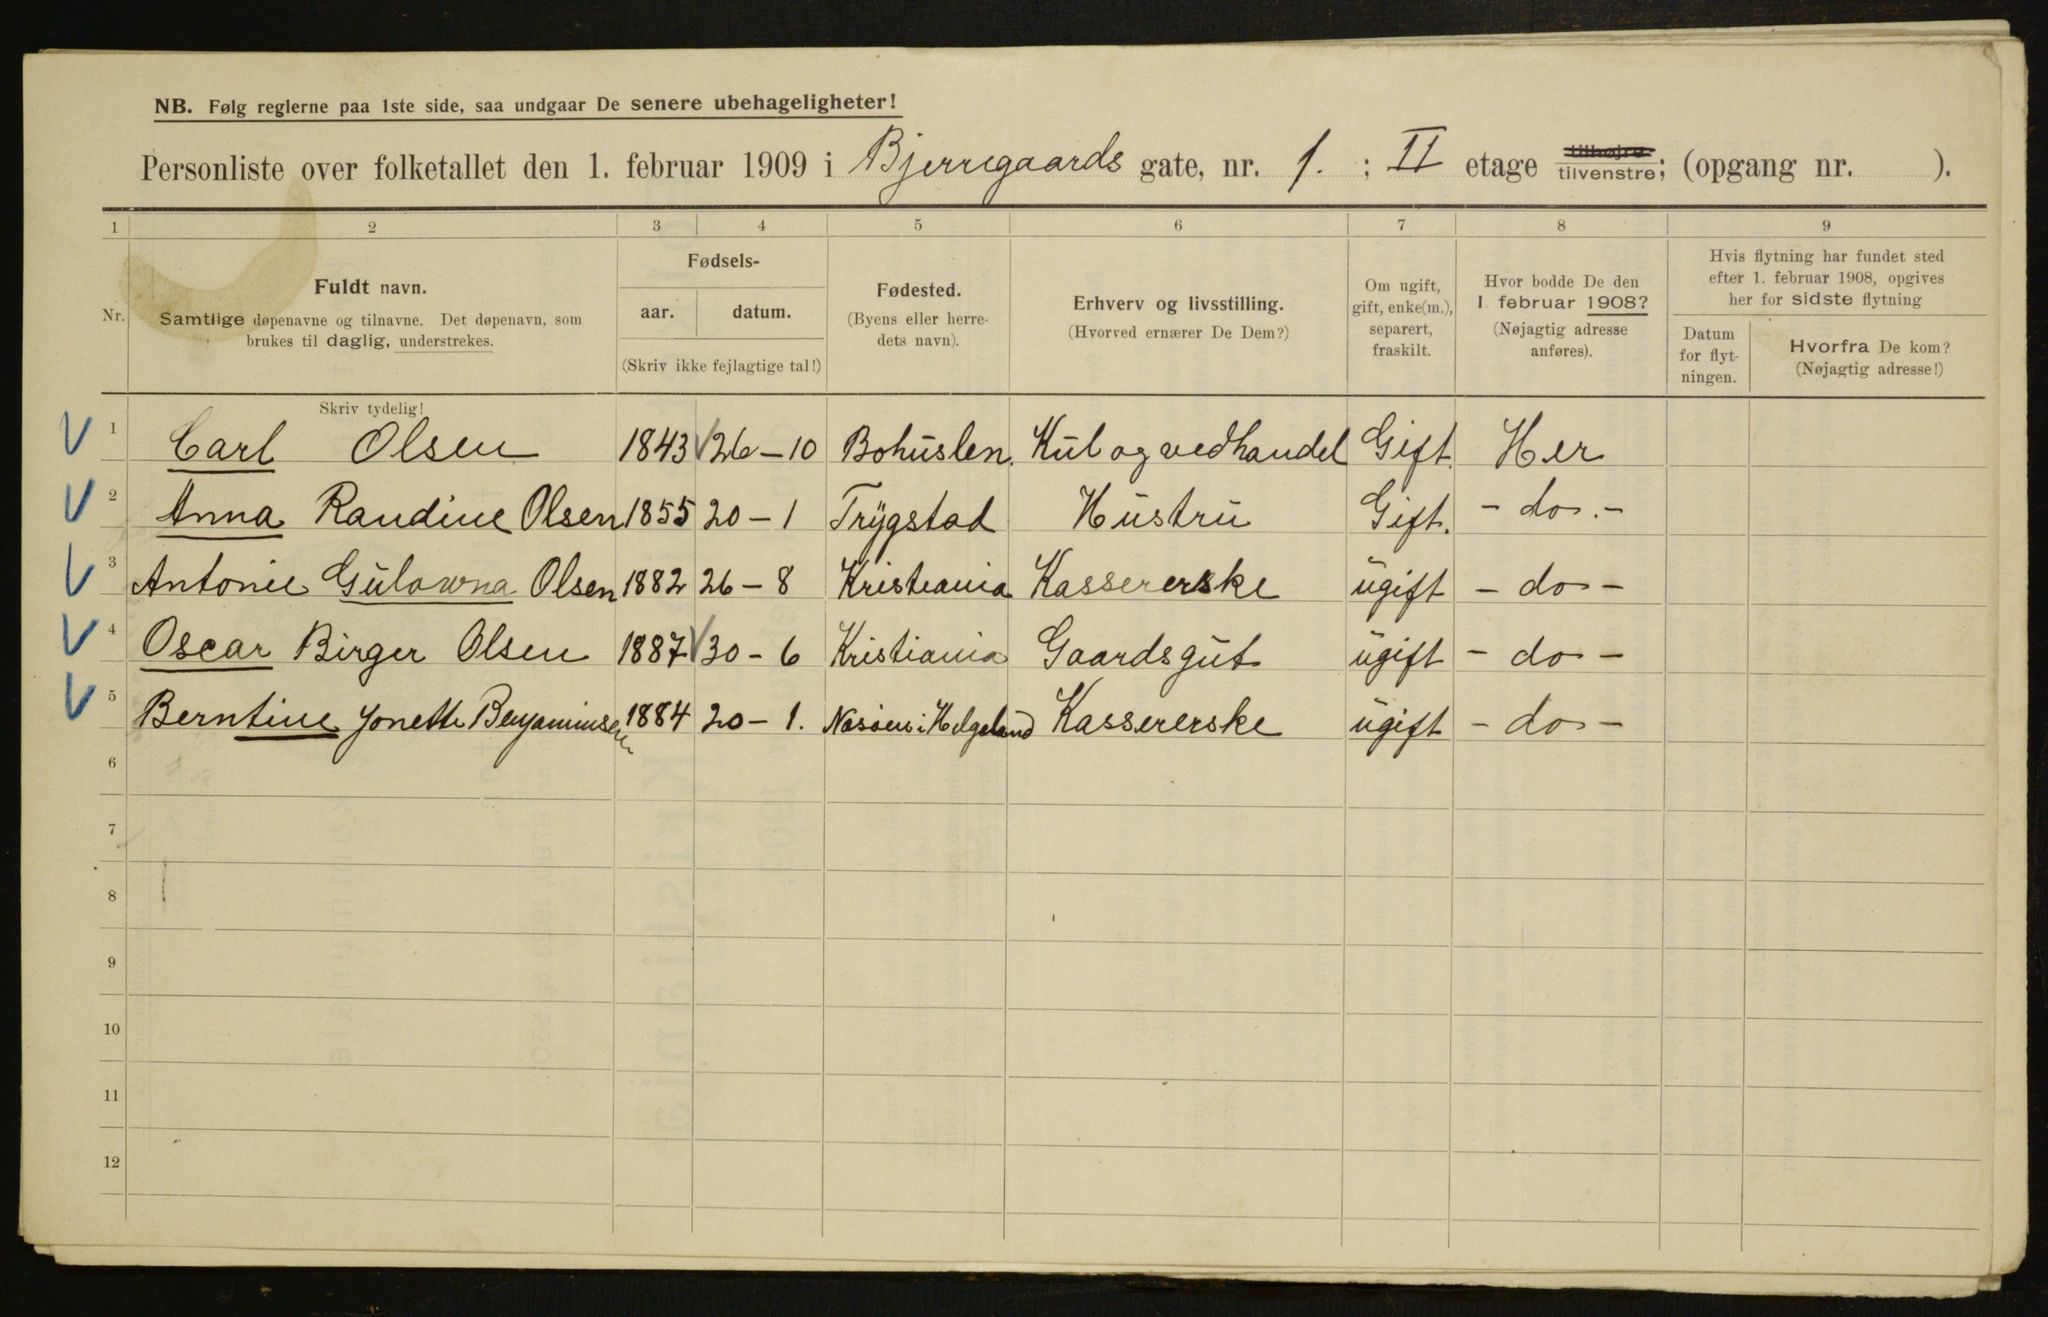 NB. Følg reglerne paa 1ste side, saa undgaar De senere ubehageligheter!
Personliste over folketallet den 1. februar 1909 i Bjerregaards gate, nr. 1. ; II etage tilhøjre tilvenstre; (opgang nr. ).
1 2 3 4 5 6 7 8 9
Nr. Fuldt navn. Samtlige døpenavne og tilnavne. Det døpenavn, som brukes til daglig, understrekes.
Fødsels-
aar. datum.
(Skriv ikke fejlagtige tal!)
Fødested. (Byens eller herredets navn).
Erhverv og livsstilling. (Hvorved ernærer De Dem?)
Om ugift, gift, enke(m.), separert, fraskilt.
Hvor bodde De den 1 februar 1908? (Nøjagtig adresse anføres).
Hvis flytning har fundet sted efter 1. februar 1908, opgives her for sidste flytning
Datum for flytningen.
Hvorfra De kom? (Nøjagtig adresse!)
Skriv tydelig!
1 Carl Olsen 1843 26-10 Bohuslen. Kul og vedhandel Gift. Her
2 Anna Randine Olsen 1855 20-1 Trygstad Hustru Gift. - do. -
3 Antonie Olsen 1882 26-8 Kristiania Kassererske ugift - do -
4 Oscar Birger Olsen 1887 30-6 Kristiania Gaardsgut ugift - do -
5 Berntine Jonette Benjaminsen 1884 20-1. i Helgeland Kassererske ugift - do -
6
7
8
9
10
11
12